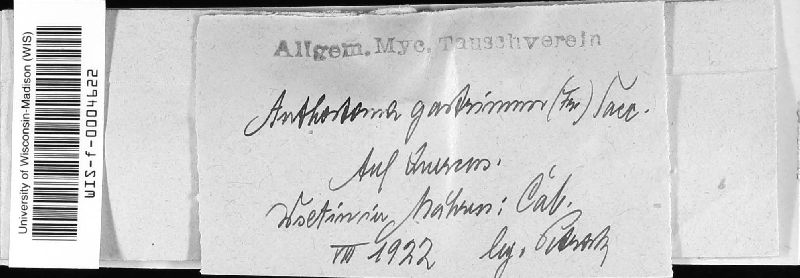 University of Wisconsin-Madison (WIS)
WIS-f-0004622
Allgem. Myc. Tauschverein
Anthostoma gastrinum (Fr.) Sacc.
Auf Quercus.
Wsetin in Mähren: Čáb.
VII 1922 leg. Petrak